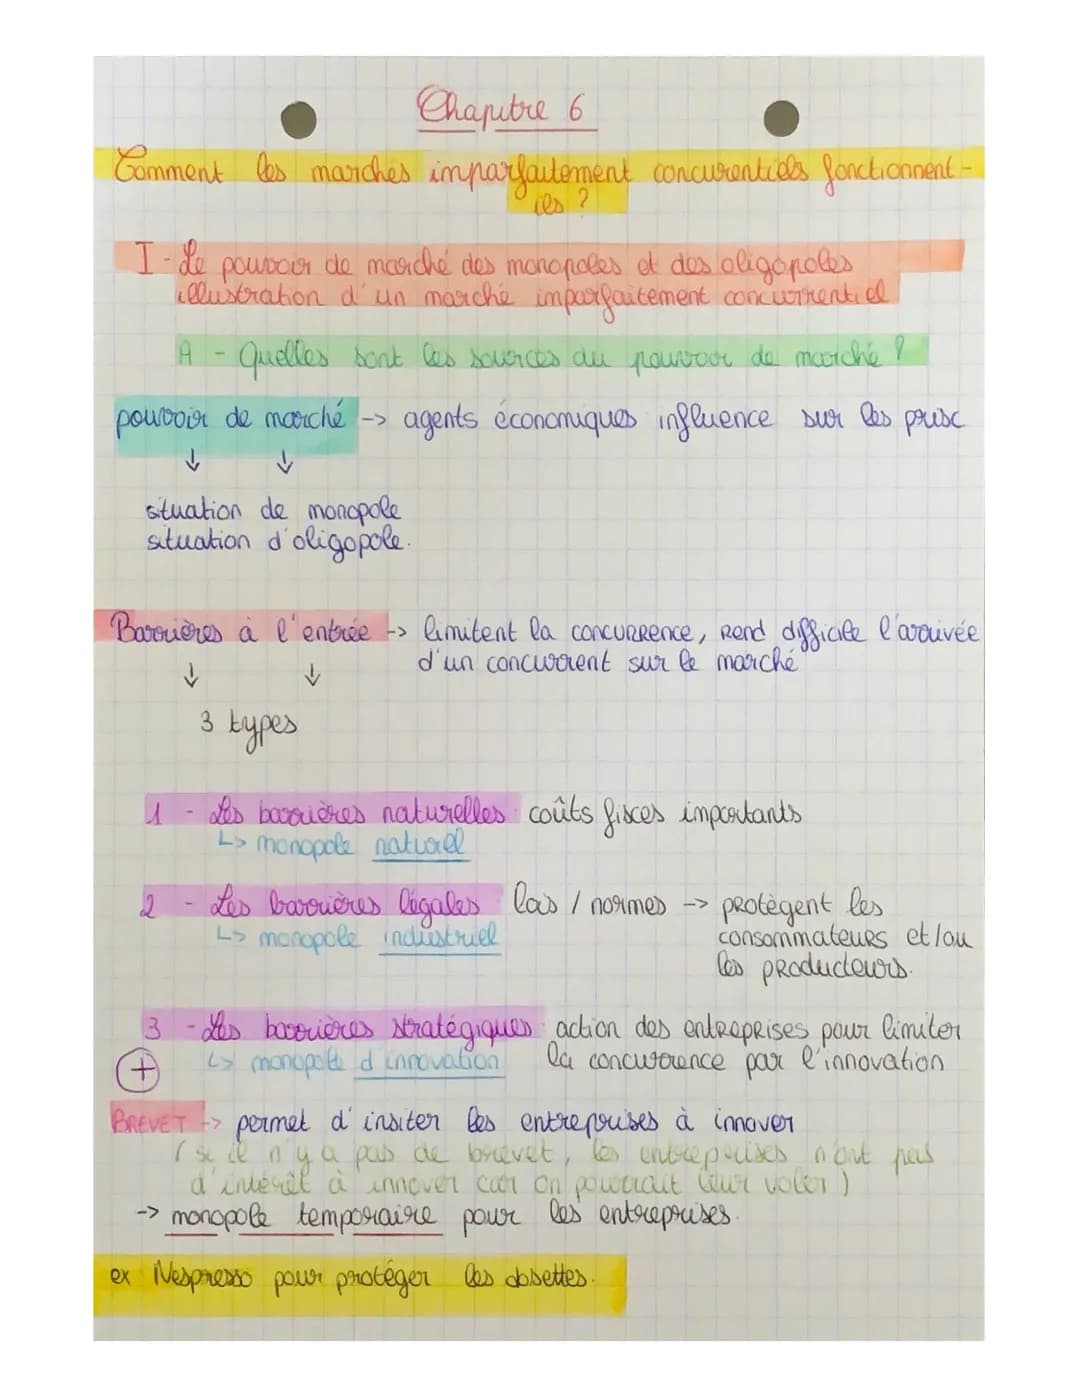 Chapitre 6
Comment les marchés imparfaitement concurentiels fonctionnent-
ils ?
I - Le pouvoir de marché des monopoles et des oligopoles
illustration d'un marché imparfaitement concurrentiel
A - Quelles sont les sources du pouvoir de marché ?
pouvoir de marché -> agents économiques influence sur les prisc
↓ ↓
situation de monopole
situation d'oligopole.
Barrières à l'entrée -> limitent la concurrence, Rend difficile l'arrivée
d'un concurrent sur le marché
↓ ↓
3 types
1 - Les barrières naturelles coûts fisces importants
↳ monopole naturel
2 - Les barrières légales lois / normes -> protègent les
↳ monopole industriel consommateurs et/ou
les producteurs.
3 - Les barrières stratégiques action des entreprises pour limiter
+ ↳ monopole d'innovation la concurrence par l'innovation
BREVET -> permet d'insiter les entreprises à innover
( si il n'y a pas de brevet, les entreprises n'ont pas
d'intérêt à innover car on pourrait leur voler )
-> monopole temporaire pour les entreprises.
ex Nespresso pour protéger les dosettes.